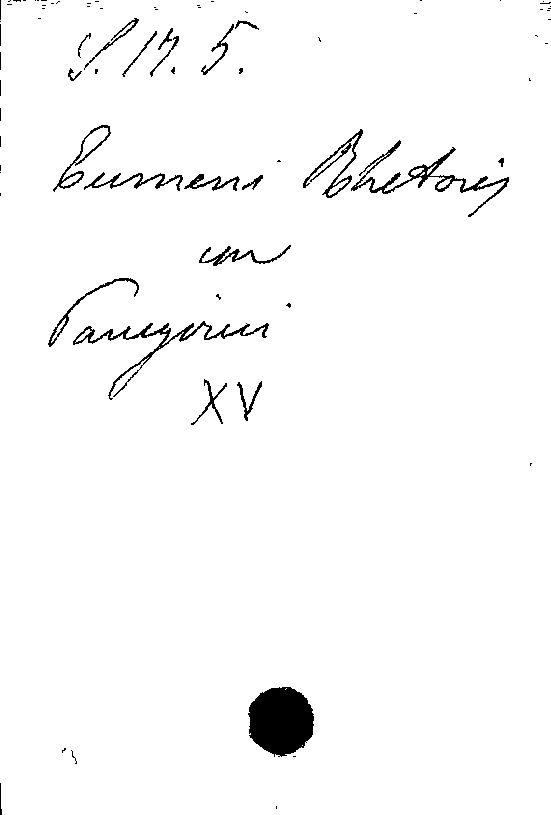 S. 17. 5.
Eumeni Rhetoris
Panegirici
XV